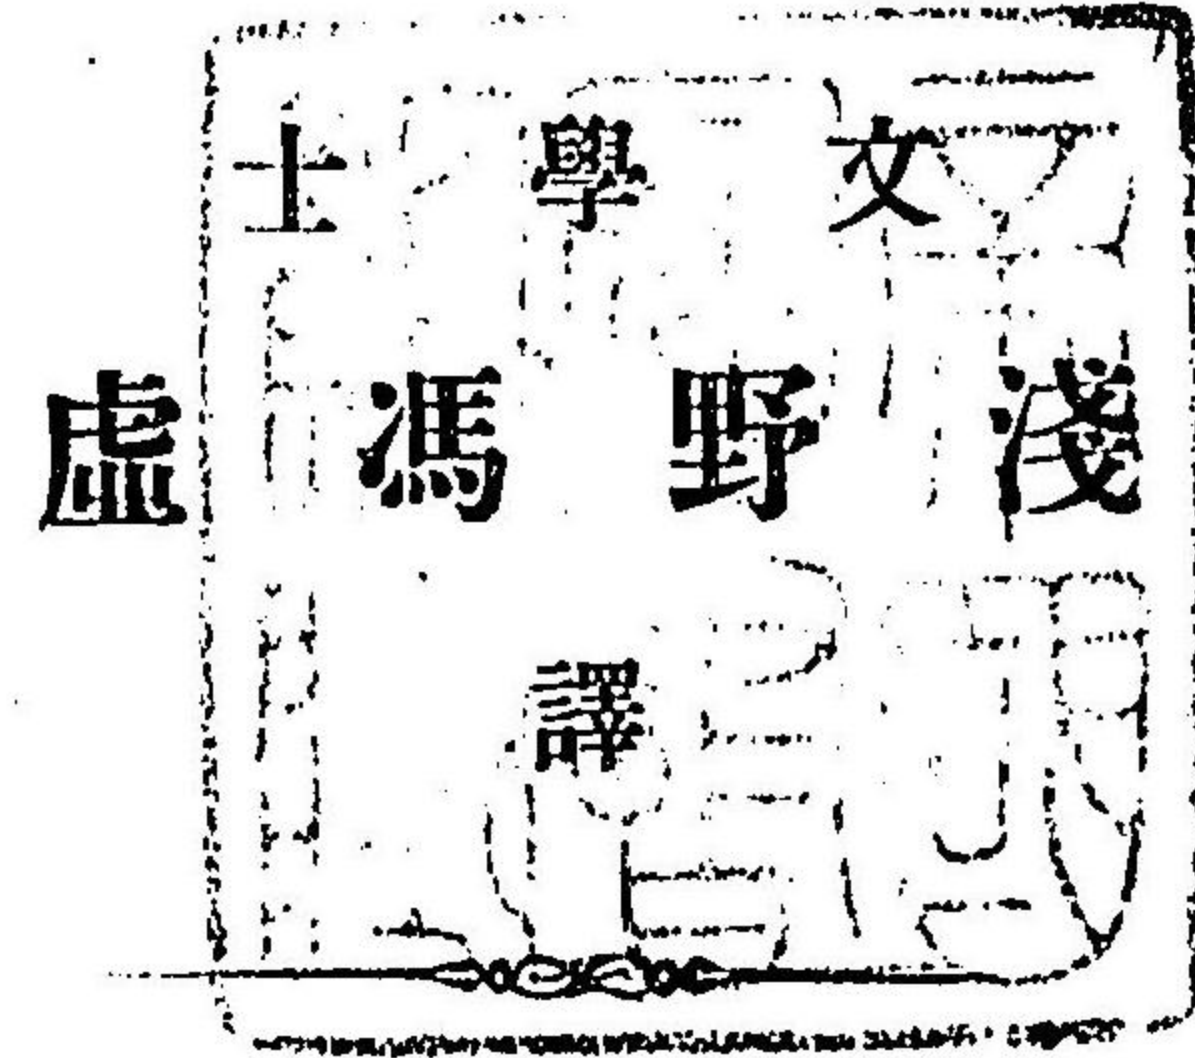 文學士
淺野馮虛
譯